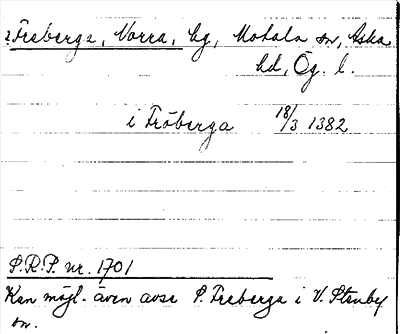 ? Freberga, Norra, by, Motala sn, Aska
hd, Ög. l.
i Fröberga 18/3 1382
S.R.P. nr. 1701
Kan möjl. även avse S. Freberga i V. Stenby
sn.